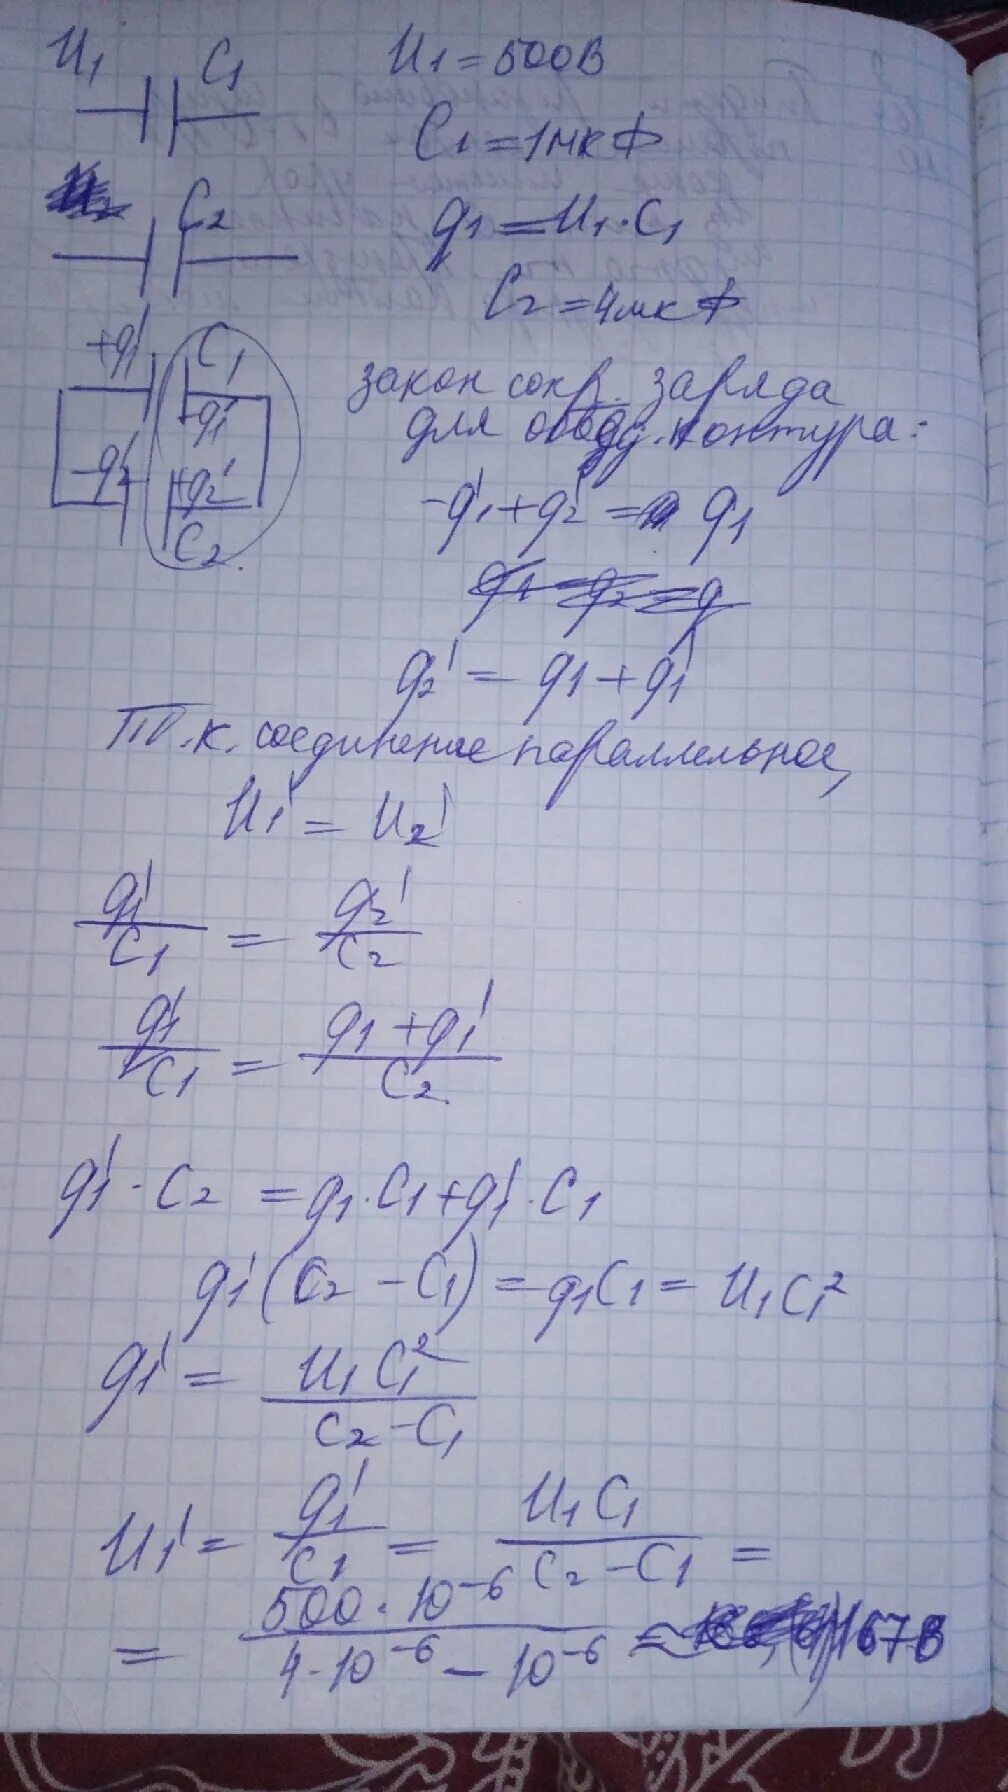 U₁ C₁ U₁ = 500В
C₁ = 1мкФ
C₂ q₁ = U₁·C₁
C₂ = 4мкФ
+q₁' C₁
-q₁'
-q₂' +q₂'
C₂
закон сохр. заряда
для обвед. контура:
-q₁' + q₂' = q₁
q₁ = q₂ = q
q₂' = q₁ + q₁'
Т.к. соединение параллельное,
U₁' = U₂'
q₁'/C₁ = q₂'/C₂
q₁'/C₁ = (q₁ + q₁')/C₂
q₁'·C₂ = q₁·C₁ + q₁'·C₁
q₁'(C₂ - C₁) = q₁C₁ = U₁C₁²
q₁' = U₁C₁²/(C₂ - C₁)
U₁' = q₁'/C₁ = U₁C₁/(C₂ - C₁) =
= 500·10⁻⁶/(4·10⁻⁶ - 10⁻⁶) = 167В